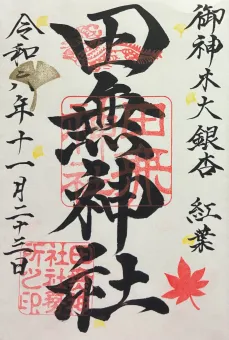 御神木大銀杏　紅葉
田無神社
令和六年十一月二十三日
田無神社
田無神社社務所之印